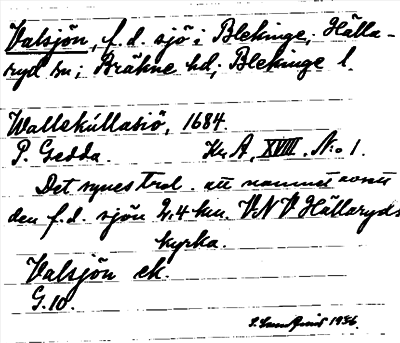 Valsjön, f. d. sjö i Blekinge; Hälla-
ryd sn; Bräkne hd; Blekinge l.
Wallekúllasiö, 1684.
P. Gedda. Kr. A. XVIII. N:o 1.
Det synes trol. att namnet avsett
den f.d. sjön 2,4 km. VNV Hällaryds
kyrka.
Valsjön ek.
G. 10.
1936.